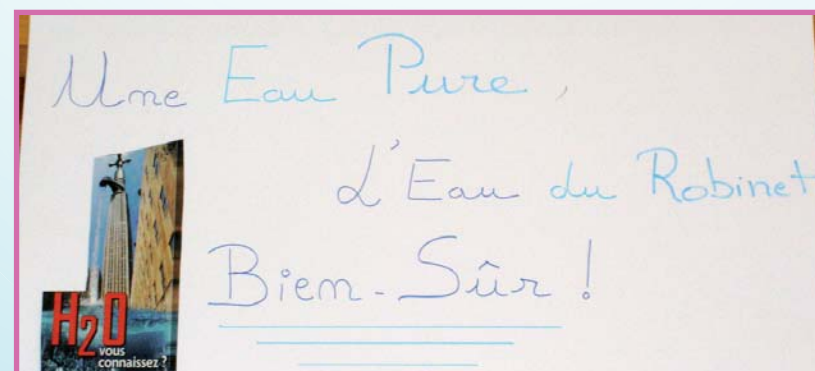 Une Eau Pure,
L'Eau du Robinet
Bien-Sûr !
H2O
vous
connaissez ?